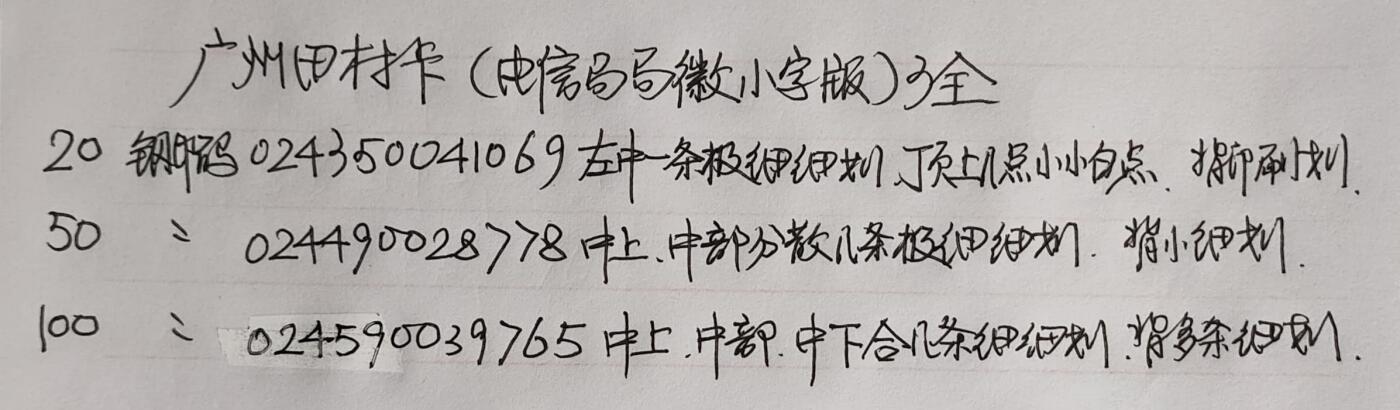 广州田村卡(电信局局徽小字版)3全
20 钢印码024350041069左中一条极细细划.顶上几点小小白点.背印刷划.
50 〃 024490028778中上.中部分散几条极细细划.背小细划.
100 〃 024590039765中上.中部.中下合几条细细划.背多条细划.